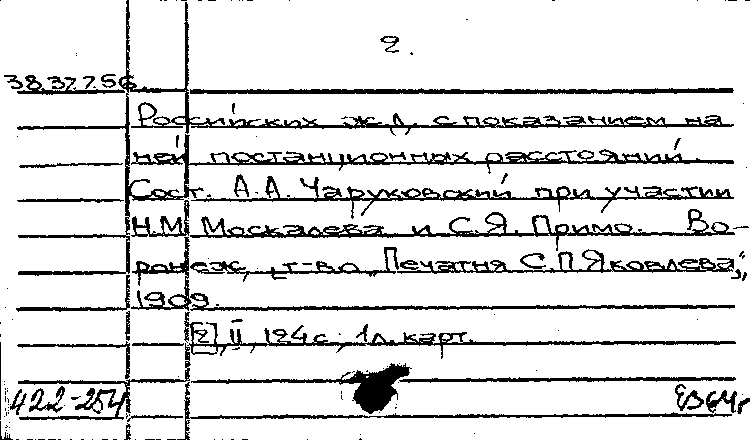 2.
38.37.7.56
Российских ж.д. с показанием на
ней постанционных расстояний.
Сост. А.А. Чаруковский при участии
Н.М. Москалева и С.Я. Примо. Во-
ронеж, т-во „Печатня С.П. Яковлева",
1909.
[2], II, 124 с., 1 л. карт.
422-254